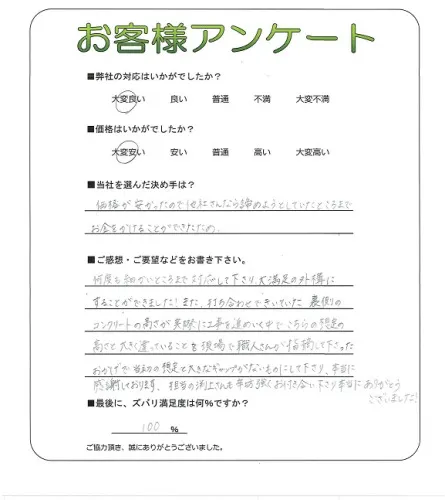 お客様アンケート
■弊社の対応はいかがでしたか？
大変良い 良い 普通 不満 大変不満
■価格はいかがでしたか？
大変安い 安い 普通 高い 大変高い
■当社を選んだ決め手は？
価格が安かったので他社さんなら諦めようとしていたところまで
お金をかけることができたため。
■ご感想・ご要望などをお書き下さい。
何度も細かいところまで対応して下さり、大満足の外構に
することができました！また、打ち合わせできいていた裏側の
コンクリートの高さが実際に工事を進めていく中でこちらの想定の
高さと大きく違っていることを現場で職人さんが指摘して下さった
おかげで当初の想定と大きなギャップがないものにして下さり、本当に
感謝しております。担当の渕上さんも年始強くお付き合い下さり本当にありがとう
ございました！
■最後に、ズバリ満足度は何％ですか？
100 ％
ご協力頂き、誠にありがとうございました。